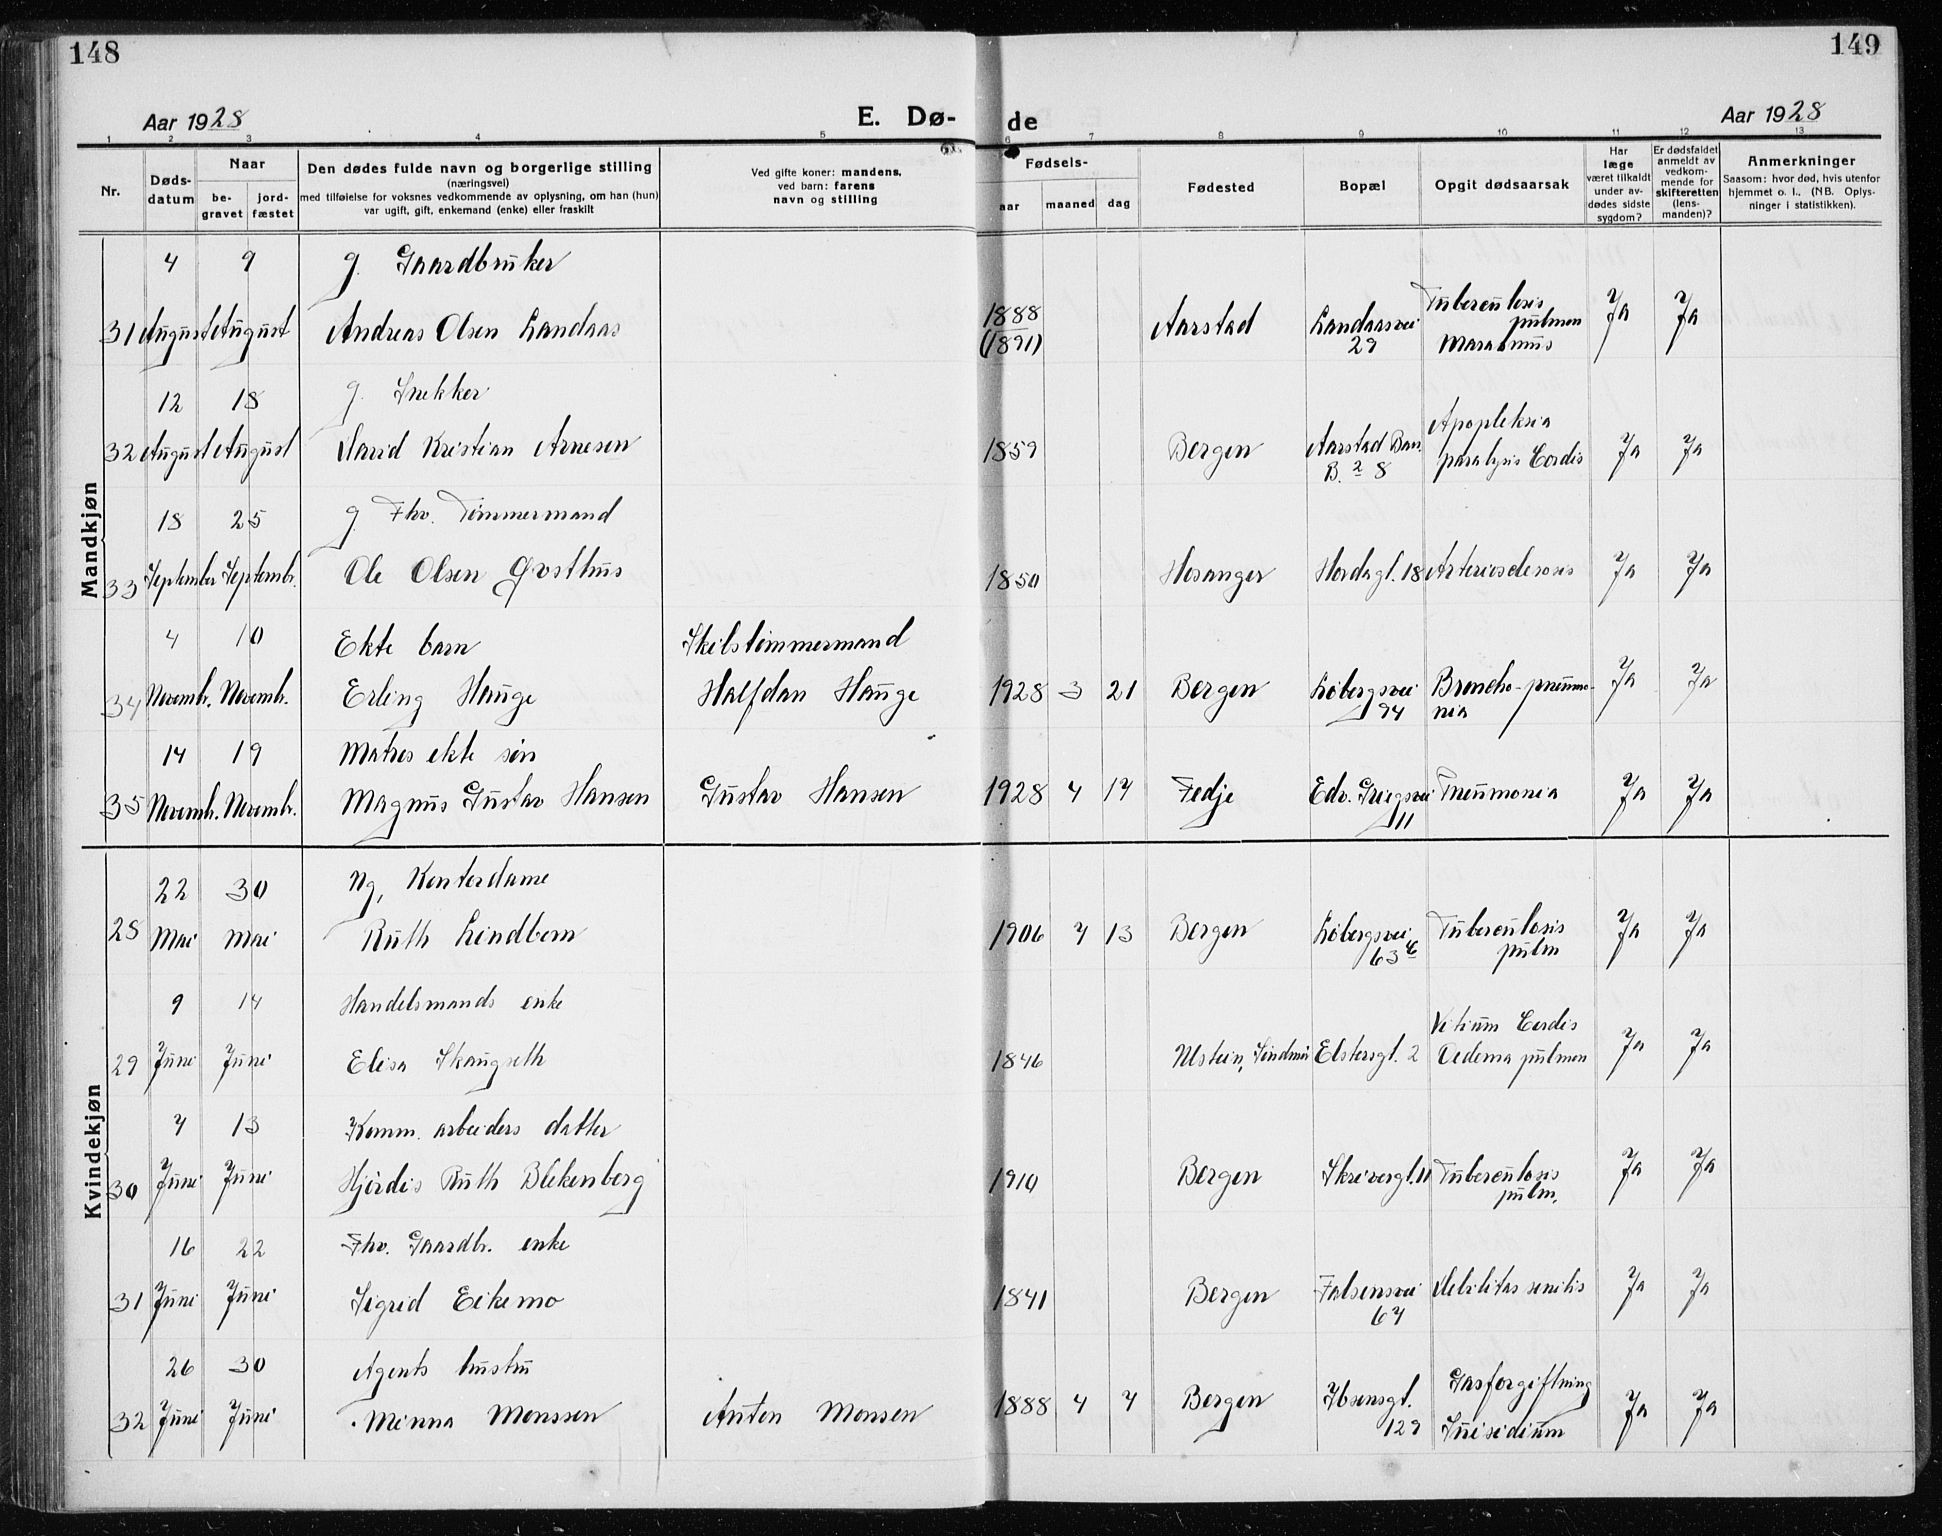 148
149
Aar 1928
E. Dø-
de
Aar 1928
1 2 3 4 5 6 7 8 9 10 11 12 13
Nr.
Døds-
datum
Naar
be-
gravet
jord-
fæstet
Den dødes fulde navn og borgerlige stilling
(næringsvei)
med tilføielse for voksnes vedkommende av oplysning, om han (hun)
var ugift, gift, enkemand (enke) eller fraskilt
Ved gifte koner: mandens,
ved barn: farens
navn og stilling
Fødsels-
aar maaned dag
Fødested
Bopæl
Opgit dødsaarsak
Har
læge
været tilkaldt
under av-
dødes sidste
sygdom?
Er dødsfaldet
anmeldt av
vedkom-
mende for
skifteretten
(lens-
manden)?
Anmerkninger
Saasom: hvor død, hvis utenfor
hjemmet o. l.. (NB. Oplys-
ninger i statistikken).
Mandkjøn
4 9 g. Gaardbruker
31 August August Andreas Olsen Landaas 1888 (1891) Aarstad Landaasvei 29 Tuberculosis pulmon Marasmus Ja Ja
12 18 g. Snekker
32 August August David Kristian Arnesen 1859 Bergen Aarstad Bar. B. 2 8 Apopleksia paralysis Cordis Ja Ja
18 25 g. Fhv. Tømmermand
33 September Septembr. Ole Olsen Øvsthus 1850 Hosanger Hordagt. 18 Arteriosclerosis Ja Ja
4 10 Ekte barn Skibstømmermand
34 Novemb. Novemb. Erling Hauge Halfdan Hauge 1928 3 21 Bergen Løbergsvei 94 Broncho-pneumo- nia Ja Ja
14 19 Matros ekte søn
35 Novemb. Novemb. Magnus Gustav Hansen Gustav Hansen 1928 4 17 Fedje Edv. Griegsvei 11 Pneumonia Ja Ja
Kvindekjøn
22 30 Ug. Kontordame
28 Mai Mai Ruth Lindbom 1906 7 13 Bergen Løbergsvei 63 c Tuberculosis pulm Ja Ja
9 14 Handelsmands enke
29 Juni Juni Elisa Skaugseth 1846 Ulstein, Søndmør Elstersgt. 2 Vitium Cordis Oedema pulmon Ja Ja
7 13 Komm. arbeiders datter
30 Juni Juni Hjørdis Ruth Blekenberg 1910 Bergen Skivergt. 11 Tuberculosis pulm. Ja Ja
16 22 Fhv. Gaardbr. enke
31 Juni Juni Sigrid Eikemo 1841 Bergen Falsensvei 67 Debilitas senilis Ja Ja
26 30 Agents hustru
32 Juni Juni Minna Monssen Anton Monsen 1888 4 7 Bergen Ibsensgt. 129 Gasforgiftning Suisidium Ja Ja